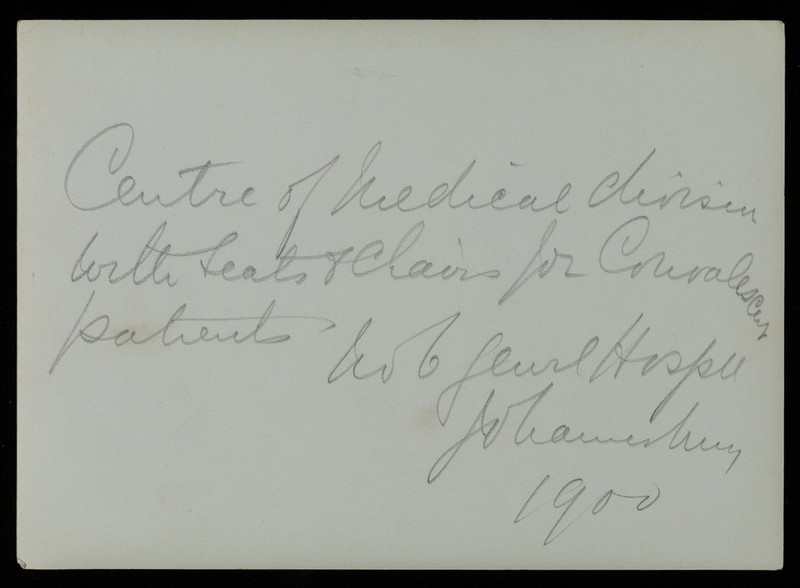 Centre of Medical division
with Seats & Chairs for Convalescent
patients
No 6 Genrl Hospll
Johannesburg
1900